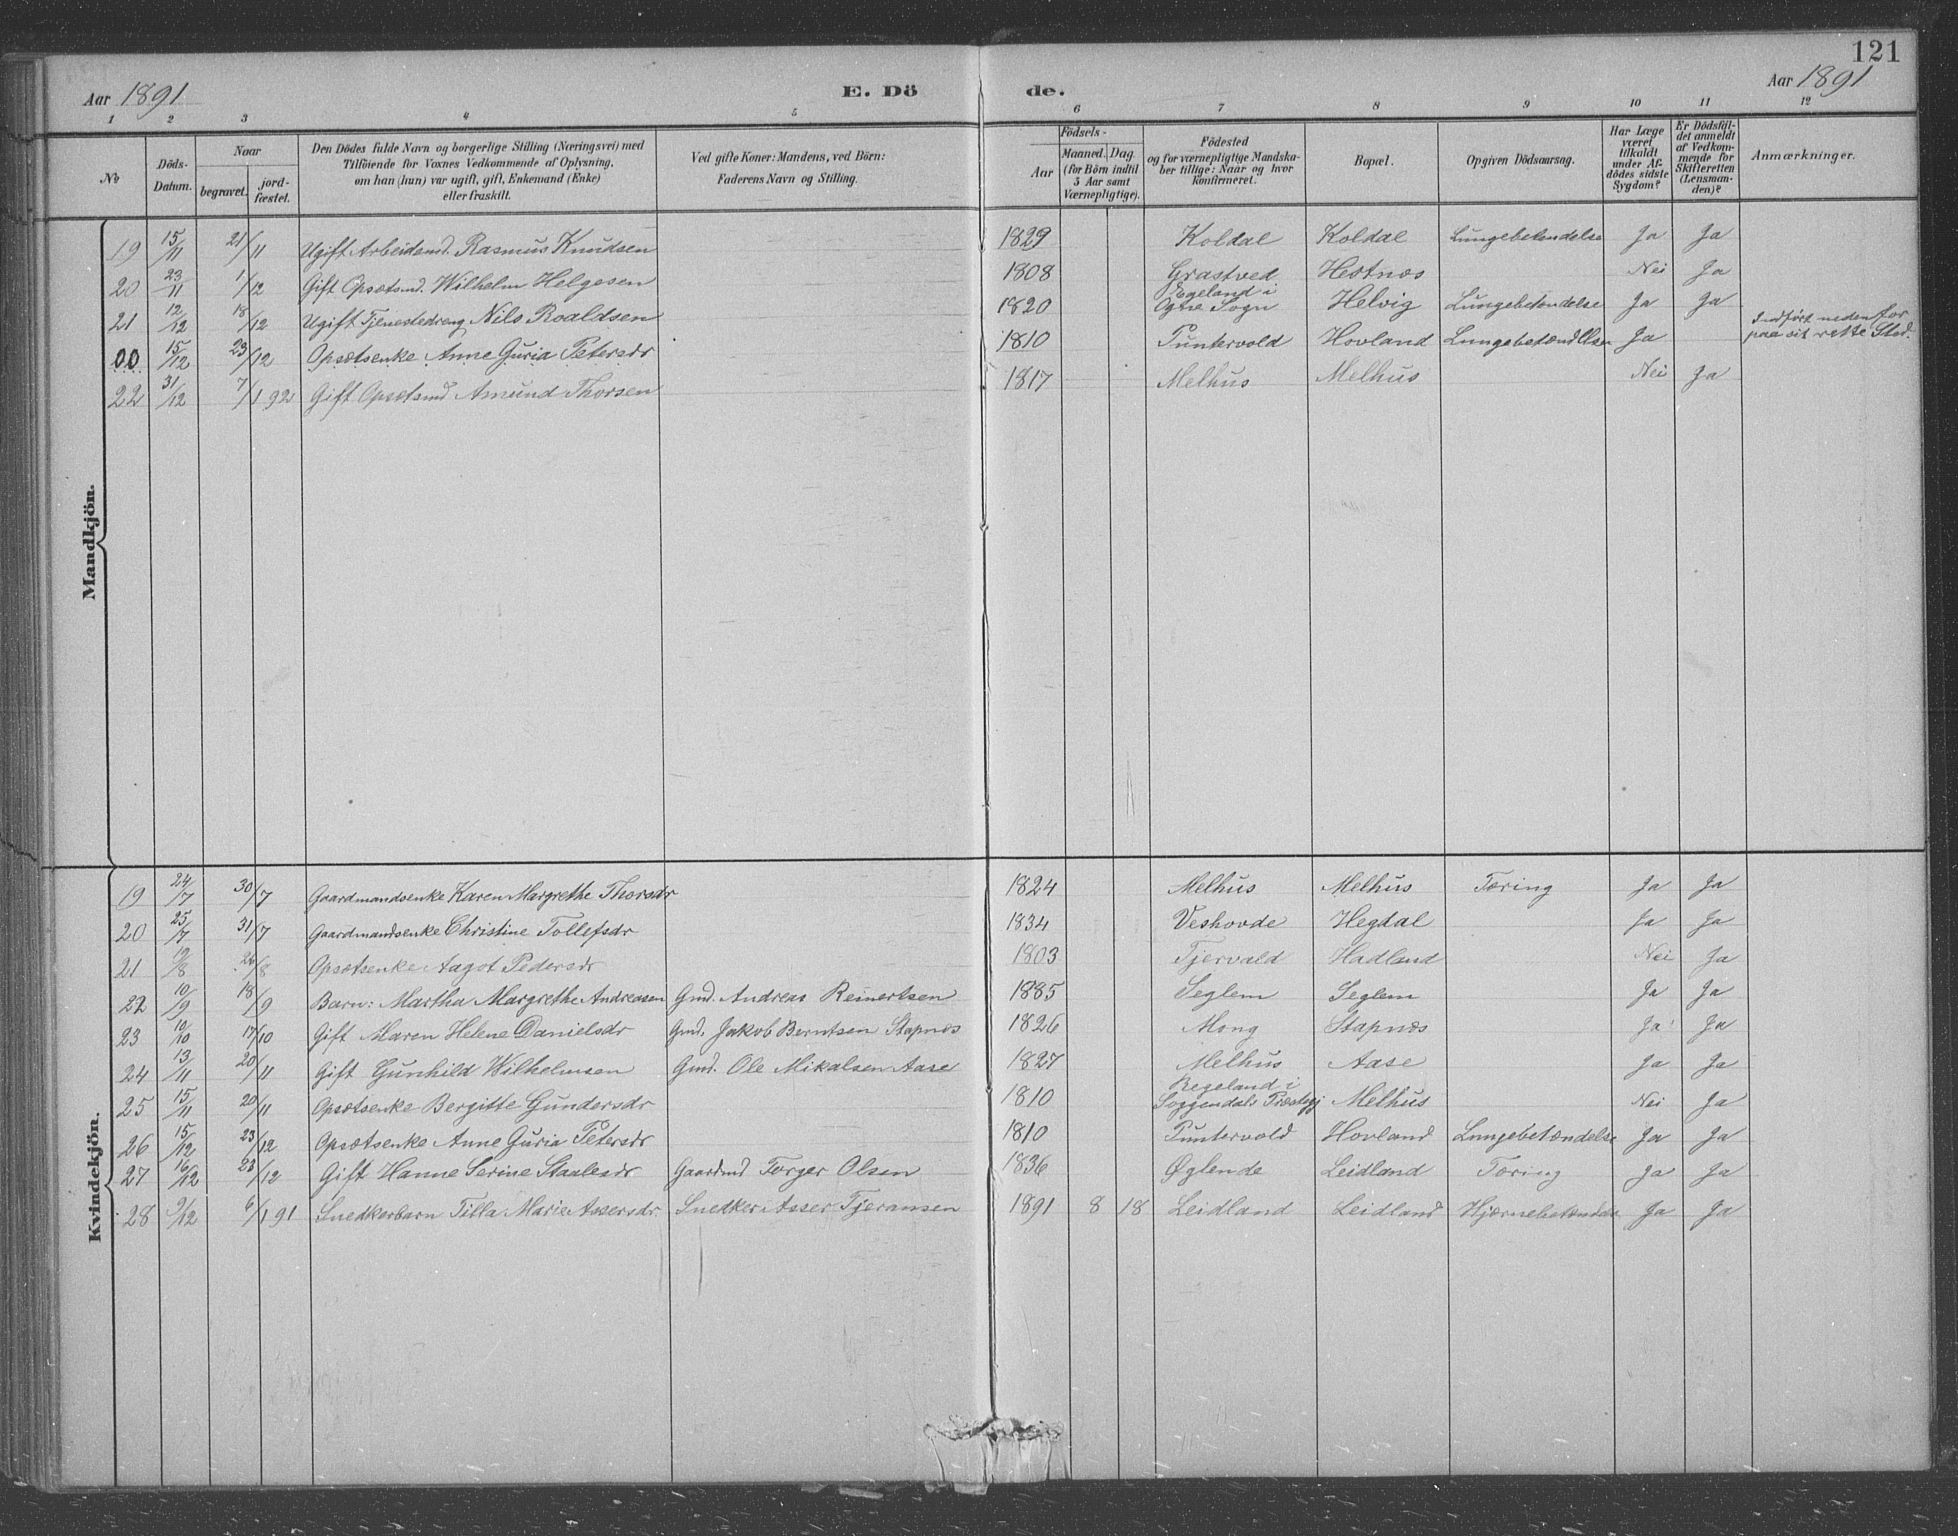 121
Aar 1891 E. Dö de. Aar 1891
1 2 3 4 5 6 7 8 9 10 11 12
No
Döds-Datum.
Naar
begravet.
jord-fæstet.
Den Dödes fulde Navn og borgerlige Stilling (Næringsvei) med
Tilföiende for Voxnes Vedkommende af Oplysning,
om han (hun) var ugift, gift, Enkemand (Enke)
eller fraskilt.
Ved gifte Koner: Mandens, ved Börn:
Faderens Navn og Stilling.
Födsels-
Aar
Maaned. Dag
(for Börn indtil
5 Aar samt
Værnepligtige).
Födested
og for værnepligtige Mandska-
ber tillige: Naar og hvor
konfirmeret.
Bopæl.
Opgiven Dödsaarsag.
Har Læge
været
tilkaldt
under Af-
dödes sidste
Sygdom?
Er Dödsfal-
det anmeldt
af Vedkom-
mende for
Skifteretten
(Lensman-
den)?
Anmærkninger.
Mandkjön.
19 15/11 21/11 Ugift Arbeidsmd. Rasmus Knudsen 1829 Koldal Koldal Lungebetendelse Ja Ja
20 23/11 1/12 Gift Opsætsmd. Wilhelm Helgesen 1808 Grastved Hestnæs Nei Ja
21 12/12 18/12 Ugift Tjenestedreng Nils Roaldsen 1820 Egeland i Ogne Sogn Helvig Lungebetendelse Ja Ja
00 15/12 23/12 Opsætsenke Anne Guria Petersdr 1810 Puntervold Hovland Lungebetændelsen Ja Indført nedenfor paa sit rette Sted.
22 31/12 7/1 92 Gift Opsætsmd Amund Thorsen 1817 Melhus Melhus Nei Ja
Kvindekjön.
19 24/7 30/7 Gaardmandsenke Karen Margrethe Thorsdr 1824 Melhus Melhus Tæring Ja Ja
20 25/7 31/7 Gaardmandsenke Christine Tollefsdr 1834 Veshovde Hegdal Ja Ja
21 19/8 26/8 Opsætsenke Aagot Pedersdr 1803 Tjervald Hadland Nei Ja
22 10/9 18/9 Barn: Martha Margrethe Andreasen Gmd. Andreas Reinertsen 1885 Seglem Seglem Ja Ja
23 10/10 17/10 Gift Maren Helene Danielsdr Gmd. Jakob Berntsen Stapnæs 1826 Mong Stapnæs Ja Ja
24 13/11 20/11 Gift Gunhild Wilhelmsen Gmd. Ole Mikalsen Aase 1827 Melhus Aase Ja Ja
25 15/11 20/11 Opsætsenke Bergitte Gundersdr 1810 Regeland i Soggendals Præstegj Melhus Nei Ja
26 15/12 23/12 Opsætsenke Anne Guria Petersdr 1810 Puntervold Hovland Lungebetændelse Ja Ja
27 16/12 23/12 Gift Hanne Serine Staalesdr Gaardmd Torger Olsen 1836 Øglende Leidland Tæring Ja Ja
28 9/12 6/1 91 Snedkerbarn Tilla Marie Assersdr. Snedker Asser Tjeransen 1891 8 18 Leidland Leidland Hjernebetændelse Ja Ja